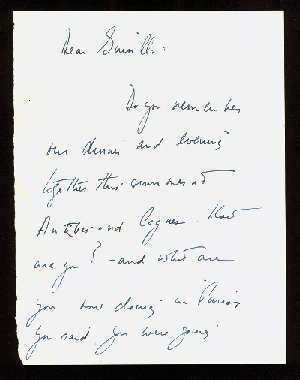 Dear
Do you remember
our dinner and evening
together this summer at
Antibes and Cagnes. How
are you? - and what are
you now doing in Paris
You said you were going